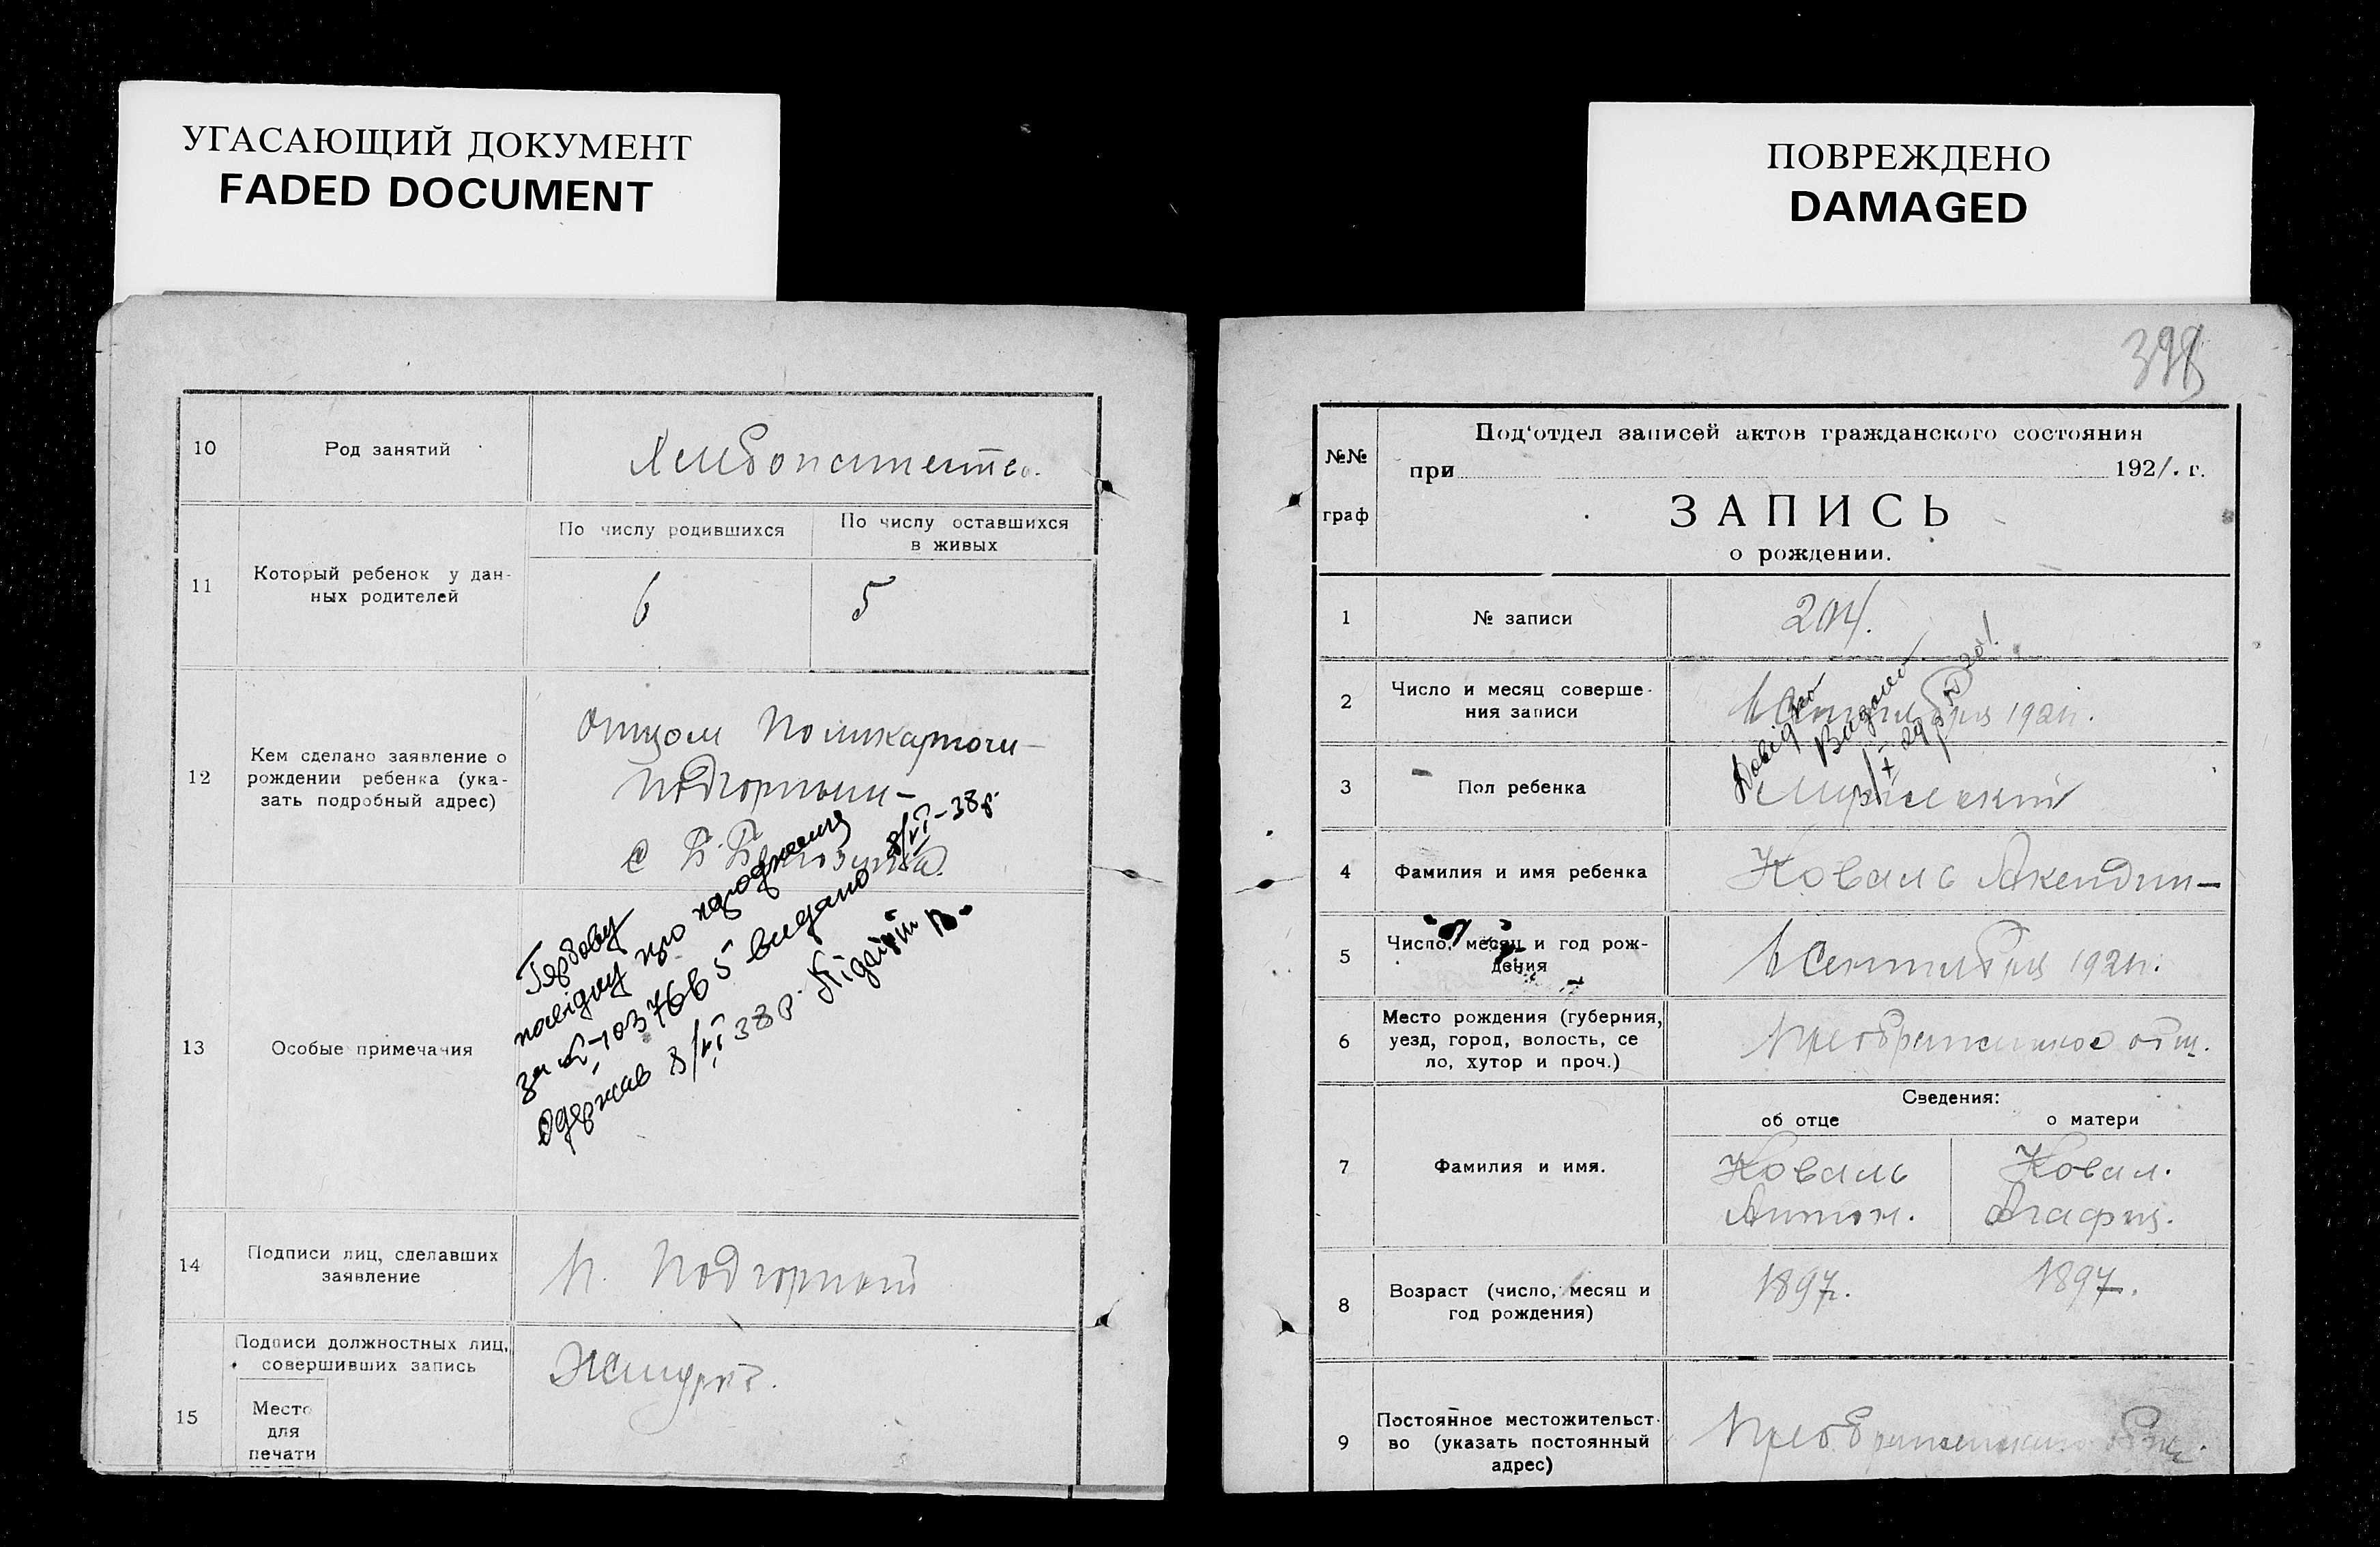 УГАСАЮЩИЙ ДОКУМЕНТ
FADED DOCUMENT
10 Род занятий Хлебопашество.
11 Который ребенок у дан-
ных родителей
По числу родившихся
По числу оставшихся
в живых
6 5
12 Кем сделано заявление о
рождении ребенка (ука-
зать подробный адрес)
Отцом Поликарпом
Подгорным
с
13 Особые примечания
Гербову
посвідку про народження
за № 1037665 видано 8/VI-38р.
Одержав 8/VI 38р. Підгірній П.
14 Подписи лиц, сделавших
заявление
П. Подгорный
15 Подписи должностных лиц,
совершивших запись
Место
для
печати
ПОВРЕЖДЕНО
DAMAGED
398
№№
граф
Под'отдел записей актов гражданского состояния
при 1921. г.
ЗАПИСЬ
о рождении.
1 № записи 204.
2 Число и месяц соверше-
ния записи
6 Сентября 192
3 Пол ребенка Мужеский
4 Фамилия и имя ребенка Коваль
5 Число, месяц и год рож-
дения
6 Сентября 192
6 Место рождения (губерния,
уезд, город, волость, се
ло, хутор и проч.)
Сведения:
об отце о матери
7 Фамилия и имя.
Коваль Ковал.
Антон. Агафия.
8 Возраст (число, месяц и
год рождения)
1897. 1897.
9 Постоянное местожительст-
во (указать постоянный
адрес)